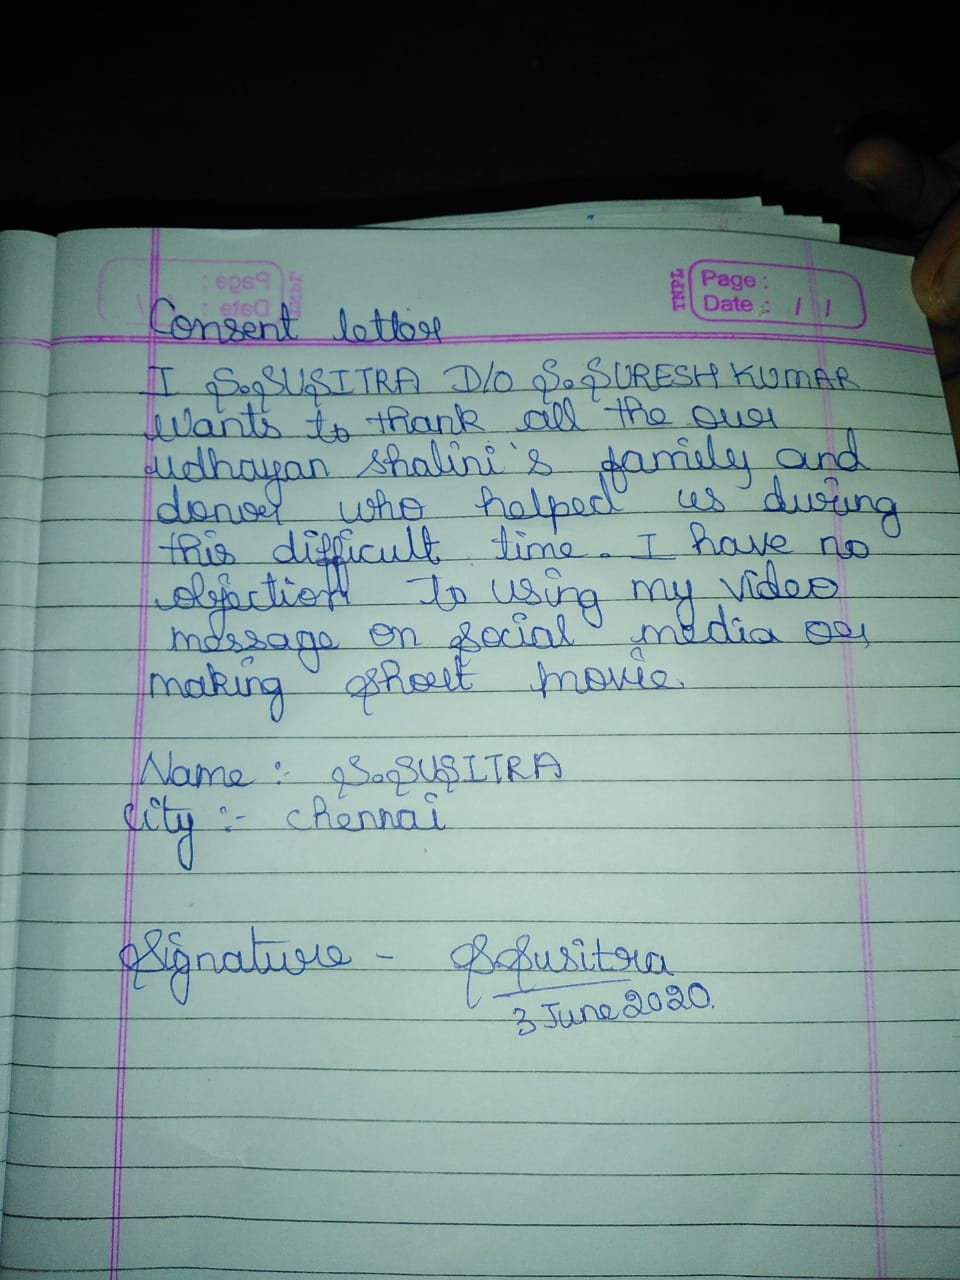 TNPL
Page :
Date : / /
Page :
Date :
Consent letter
I S. SUSITRA D/O S. SURESH KUMAR
wants to thank all the our
udhayan shalini's family and
donor who helped us during
this difficult time. I have no
objection to using my video
message on social media or
making short movie.
Name :- S. SUSITRA
City :- chennai
Signature - S Susitra
3 June 2020.